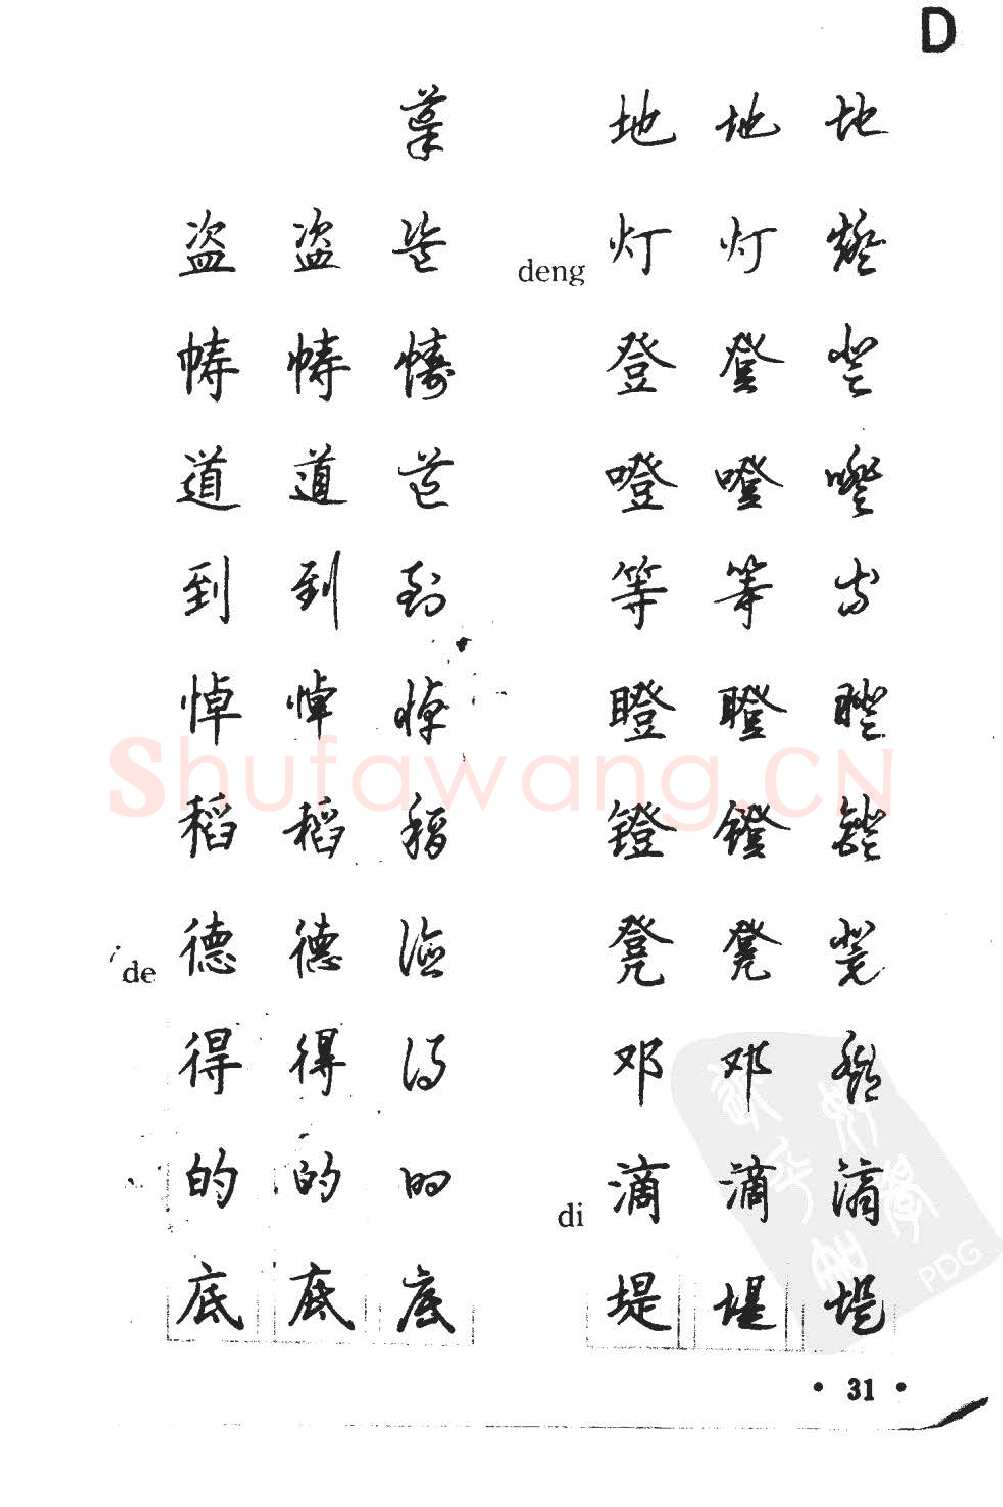 D
地 地 地
盗 盗 盗
deng 灯 灯 燈
帱 帱 幬
登 登 登
道 道 道
噔 噔 噔
到 到 到
等 等 等
悼 悼 悼
瞪 瞪 瞪
稻 稻 稻
镫 镫 鐙
de 德 德 德
凳 凳 凳
得 得 得
邓 邓 鄧
的 的 的
di 滴 滴 滴
底 底 底
堤 堤 堤
• 31 •
Shufawang.CN
PDG